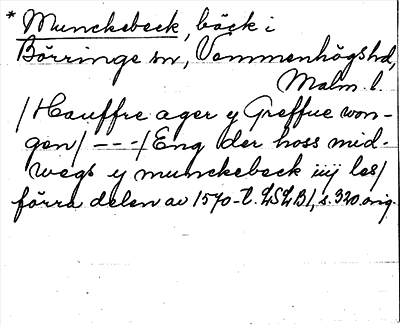 * Munckebeck, bäck i
Börringe sn, Vemmenhögs hd,
Malm. l.
/Hauffre ager y Greffue won-
gen/ ---/Eng der hoss mid-
wegs y munckebeck iiij les/
förra delen av 1570-t. LSLB1, s. 320 orig.